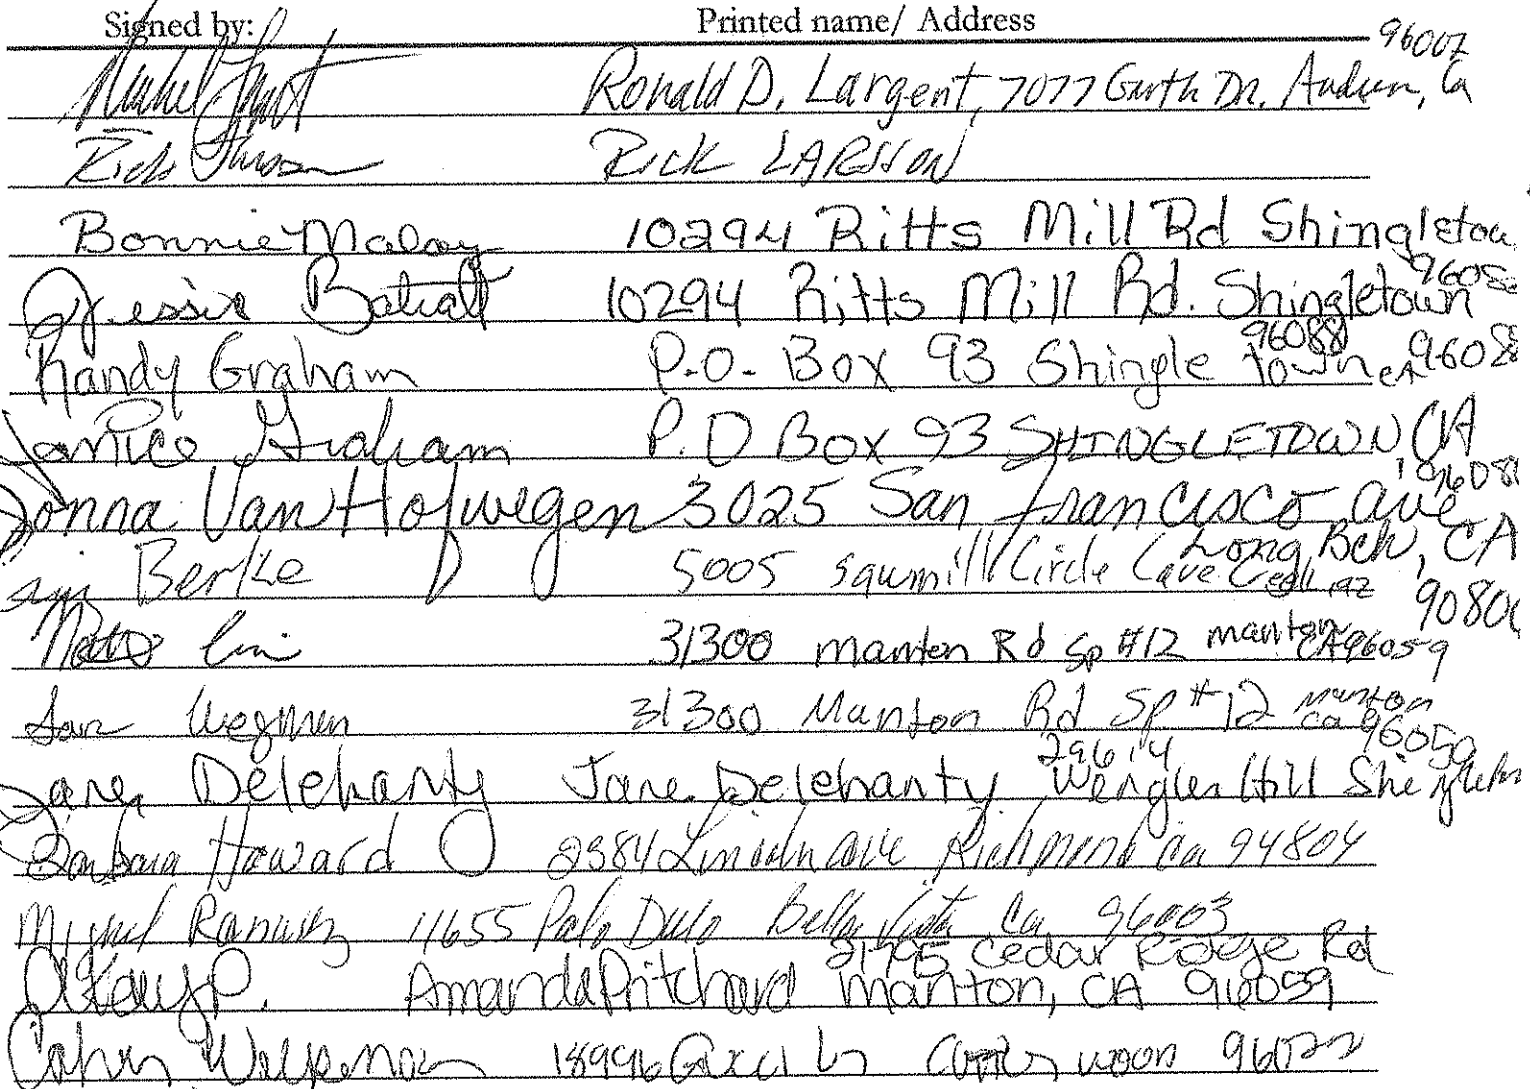 Signed by: Printed name/ Address
Ronald D. Largent, 7077 Garth Dr. Ca 96002
Rick Larsson RICK LARSSON
Bonnie Maloy 10294 Ritts Mill Rd Shingletow
Jessie 10294 Ritts Mill Rd. Shingletown 9608
Randy Graham P.O. Box 93 Shingle town CA 96088 9608
Janice Graham P.O Box 93 SHINGLETOWN CA 9608
Donna Van Hofwegen 3025 San Francisco ave Long Bch, CA 9080
Berke 5005 Sawmill Circle Cave Creek AZ
31300 manton Rd Sp #12 manton CA 96059
Wegman 31300 Manton Rd Sp #12 Manton Ca 96059
Jane Delehanty Jane Delehanty 29614 Wengler Hill Shingletn
Barbara Howard 2384 Lincoln ave Richmond Ca 94804
11655 Palo Bella Vista Ca 96003
Amanda Pritchard Cedar Ridge Rd manton, CA 96059
Ln 96022